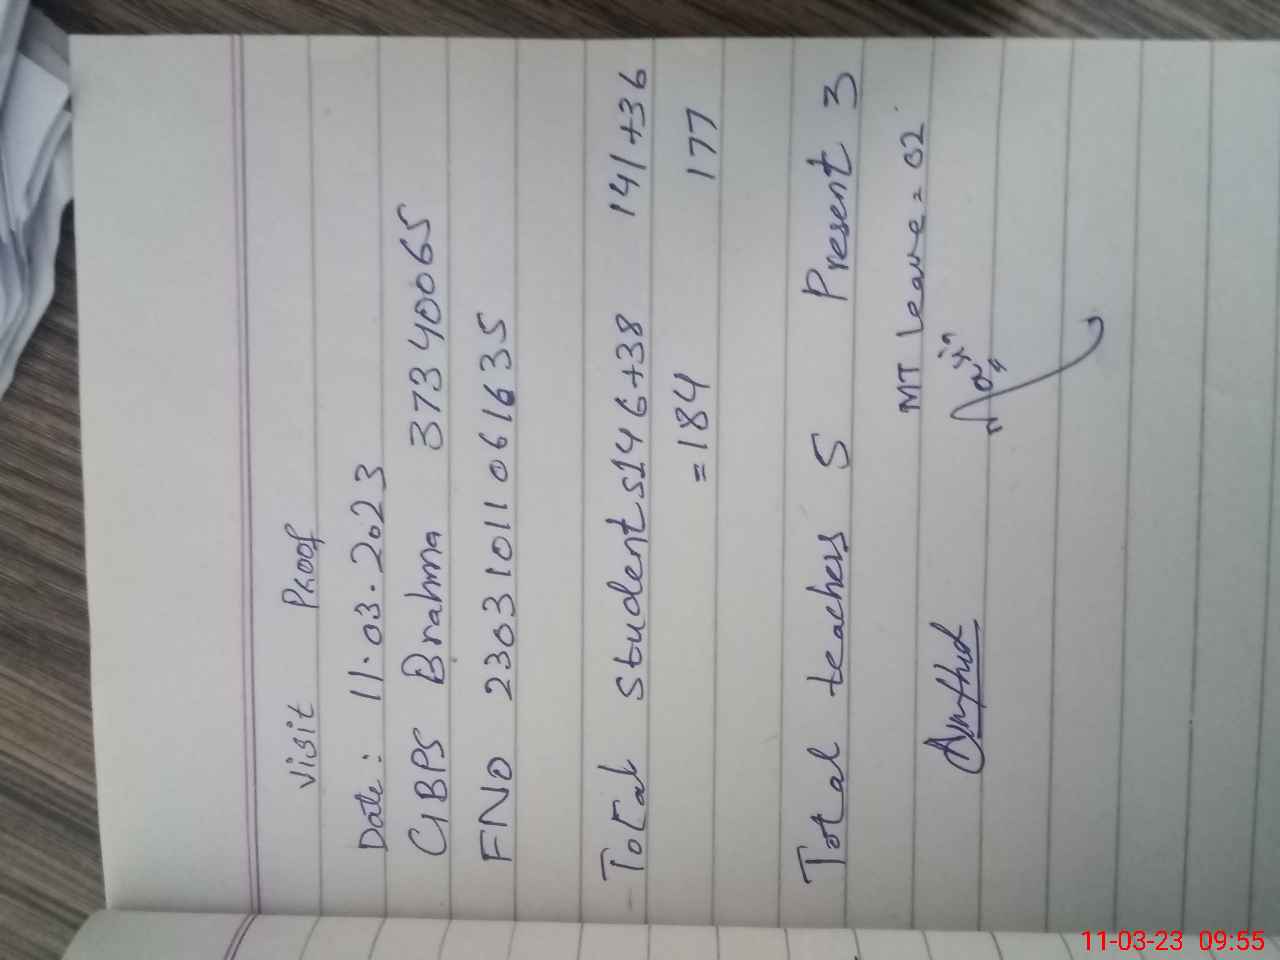 Visit Proof
Date: 11.03.2023
GBPS Brahma 37340065
FNO 23031011061635
Total Students 146+38 141+36
=184 177
Total teachers 5 Present 3
MT leave = 02
11-03-23 09:55